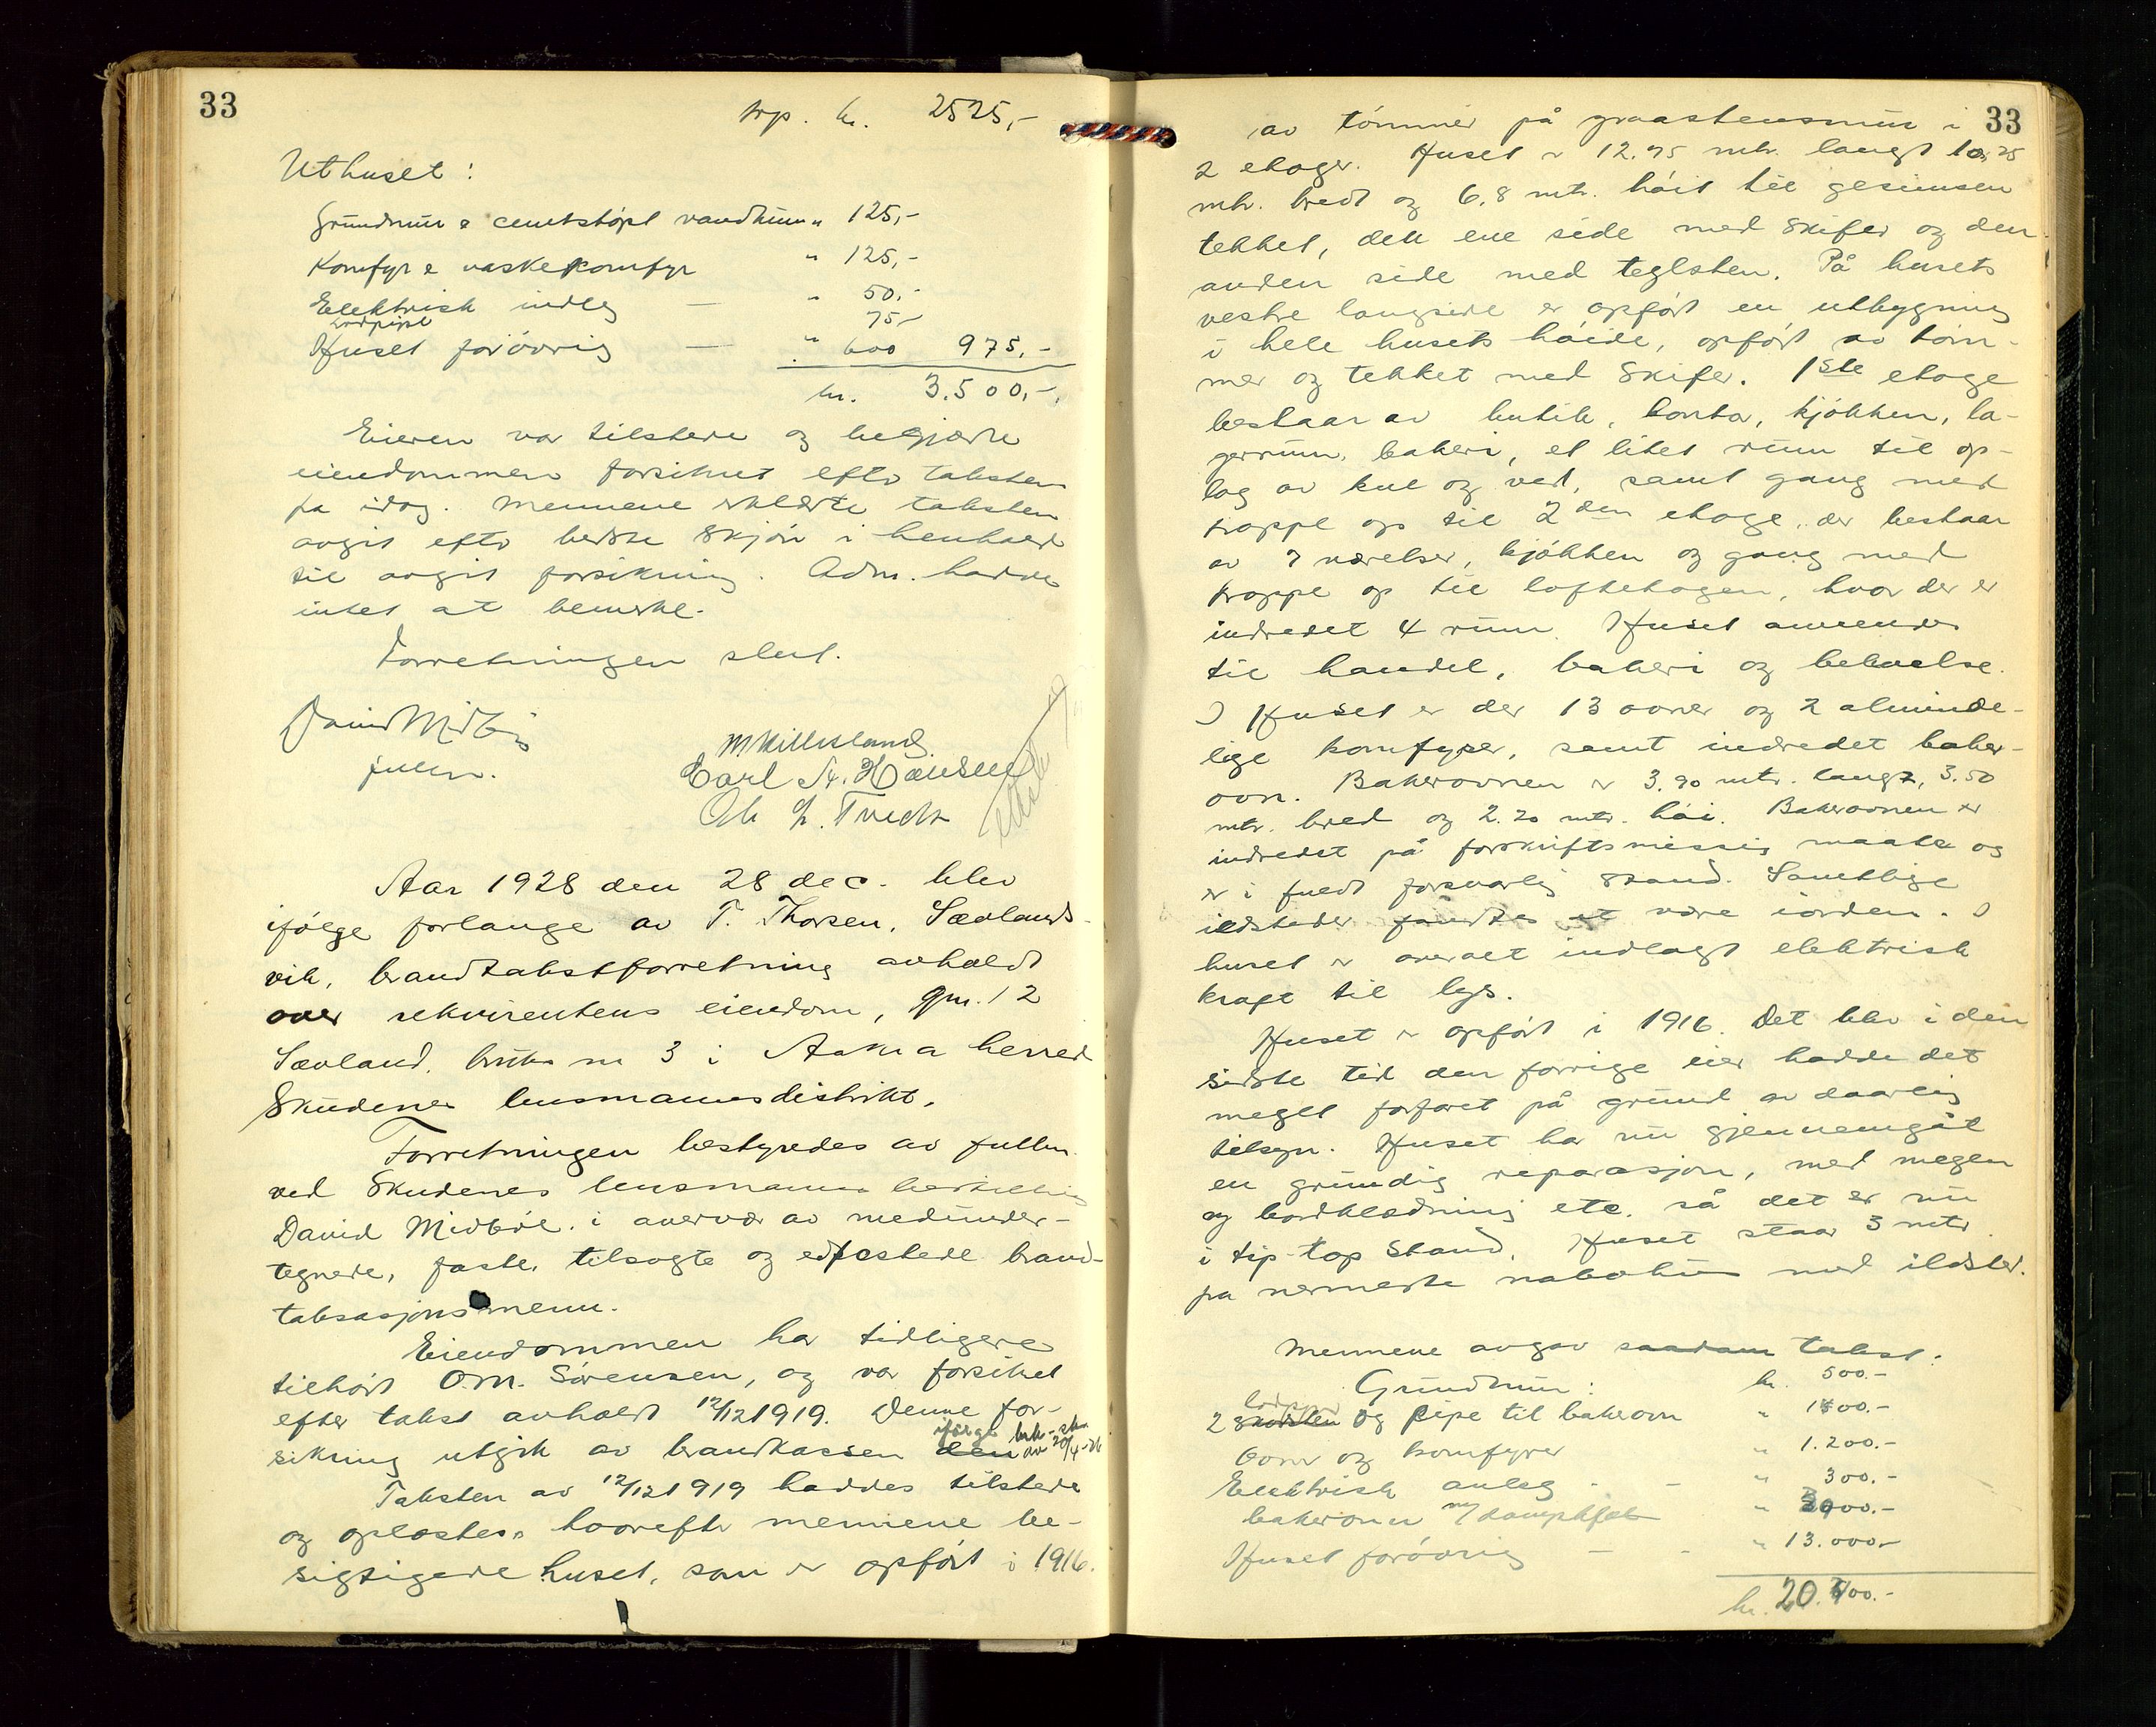 33
trp. kr. 2525,-
Uthuset:
Grundmur & cemtstöpt vandkum " 125,-
Komfyr & vaskekomfyr " 125,-
Elektrisk indleg — " 50,-
75,-
Huset forövrig — " 600 975,-
kr. 3.500,-
Eieren var tilstede og begjærte
eiendommen forsikret efter taksten
fra idag. Mennene erklærte taksten
avgit efter bedste skjön i henhold
til avgit forsikring. Adm. hadde
intet at bemerke.
Forretningen slut.
David Midböe
fullm.
M Hillesland
Carl A. Hansen
Ole L. Tveit
Aar 1928 den 28 dec. blev
ifölge forlange av T. Thorsen, Sævlands-
vik, brandtakstforretning avholdt
over rekvirentens eiendom, gm. 12
Sævland, bruks nr 3 i Aakra herred
Skudenes lensmannsdistrikt.
Forretningen bestyredes av fullm.
ved Skudenes lensmanns bestilling
David Midböe. i overvær av medunder-
tegnede, faste, tilsagte og edfestede brand-
taksasjonsmenn.
Eiendommen har tidligere
tilhört O.M. Sörensen, og var forsikret
efter takst avholdt 12/12 1919. Denne for-
sikring utgik av brandkassen den ifölge av 20/4-26
Taksten av 12/12 1919 haddes tilstede
og oplæstes, hvorefter mennene be-
sigtigede huset, som er opfört i 1916.
33
av tömmer på graastensmur i
2 etager. Huset er 12.75 mtr. langt 10,25
mtr. bredt og 6,8 mtr. höit til gesimsen
tekket, den ene side med Skifer og den
anden side med teglsten. På husets
vestre langside er opfört en utbygning
i hele husets höide, opfört av töm-
mer og tekket med Skifer. 1ste etage
bestaar av butik, kontor, kjökken, la-
gerrum, bakeri, et litet rum til op-
lag av kul og ved, samt gang med
trappe op til 2den etage, der bestaar
av 7 værelser, kjökken og gang med
trappe op til loftetagen, hvor der er
indredet 4 rum. Huset anvendes
til handel, bakeri og beboelse.
I Huset er der 13 ovner og 2 alminde-
lige komfyrer, samt indredet baker-
ovn. Bakerovnen er 3.90 mtr. lang, 3.50
mtr. bred og 2.20 mtr. höi. Bakerovnen er
indredet på forskriftsmessig maate og
er i fuldt forsvarlig stand. Samtlige
ildsteder fandtes at være iorden. I
huset er overalt indlagt elektrisk
kraft til lys.
Huset er opfört i 1916. Det blev i den
sidste tid den forrige eier hadde det
meget forfaret på grund av daarlig
tilsyn. Huset har nu gjennemgåt
en grundig reparasjon, med
og bordklædning etc. så det er nu
i tip-top Stand. Huset staar 3 mtr.
fra nermeste nabohus med ildsted.
Mennene avgav saadan takst:
Grundmur: kr. 500.-
2 skorsten og pipe til bakerovn " 1400.-
Ovne og komfyrer " 1.200.-
Elektrisk anleg - - " 300.-
bakerovn m/ dampkjel " 000.-
Huset forövrig - - " 13.000,-
kr. 20.400.-